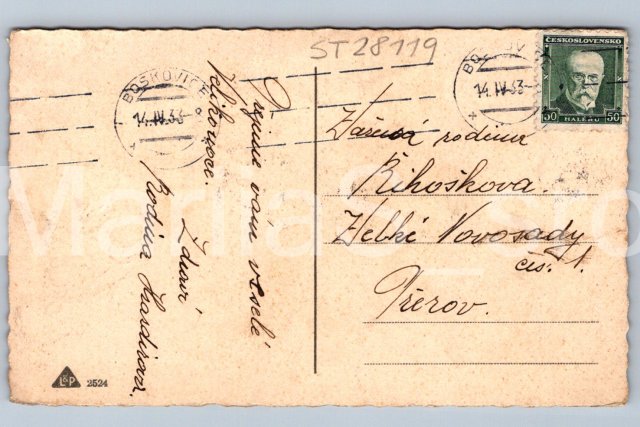 ST28119
BOSKOVICE
14.IV.33
ČESKOSLOVENSKO
50 HALÉŘŮ 50
Přejeme vám veselé
Velikonoce.
Zdraví
Rodina
Vážená rodina
Řihoškova.
Velké Novosady
čís. 1.
Přerov.
L&P 2524